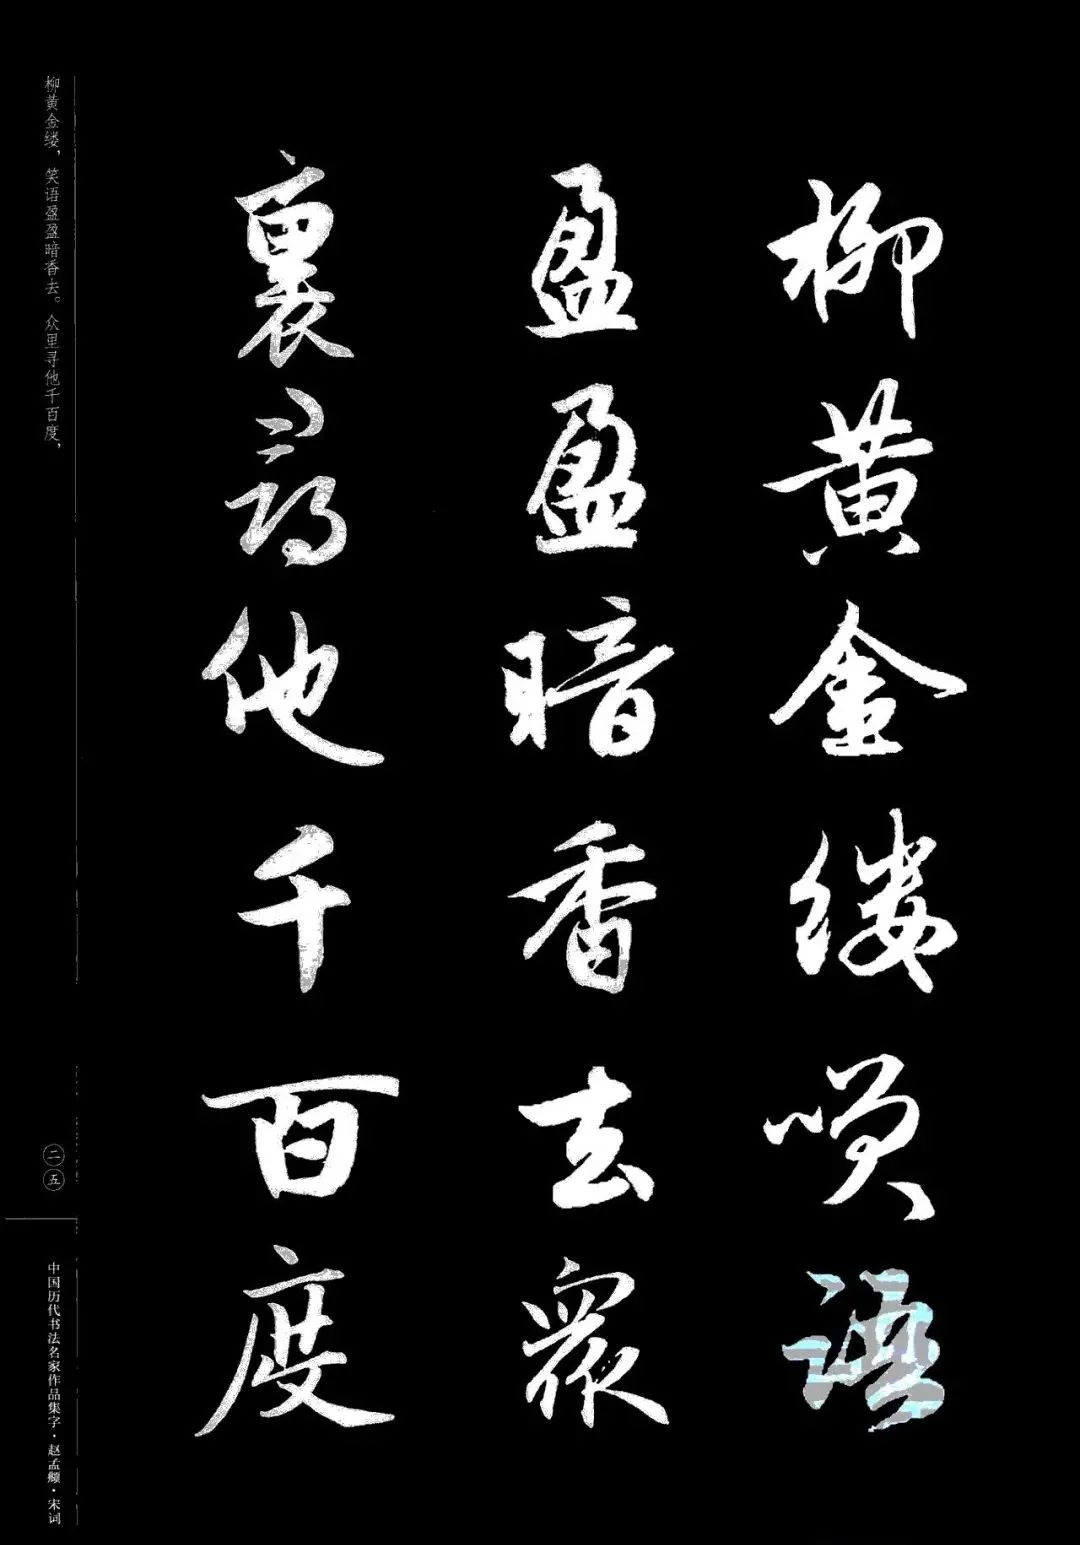 柳黄金缕咲语
盈盈暗香去眾
裏尋他千百度
柳黄金缕，笑语盈盈暗香去。众里寻他千百度，
二五
中国历代书法名家作品集字·赵孟頫·宋词